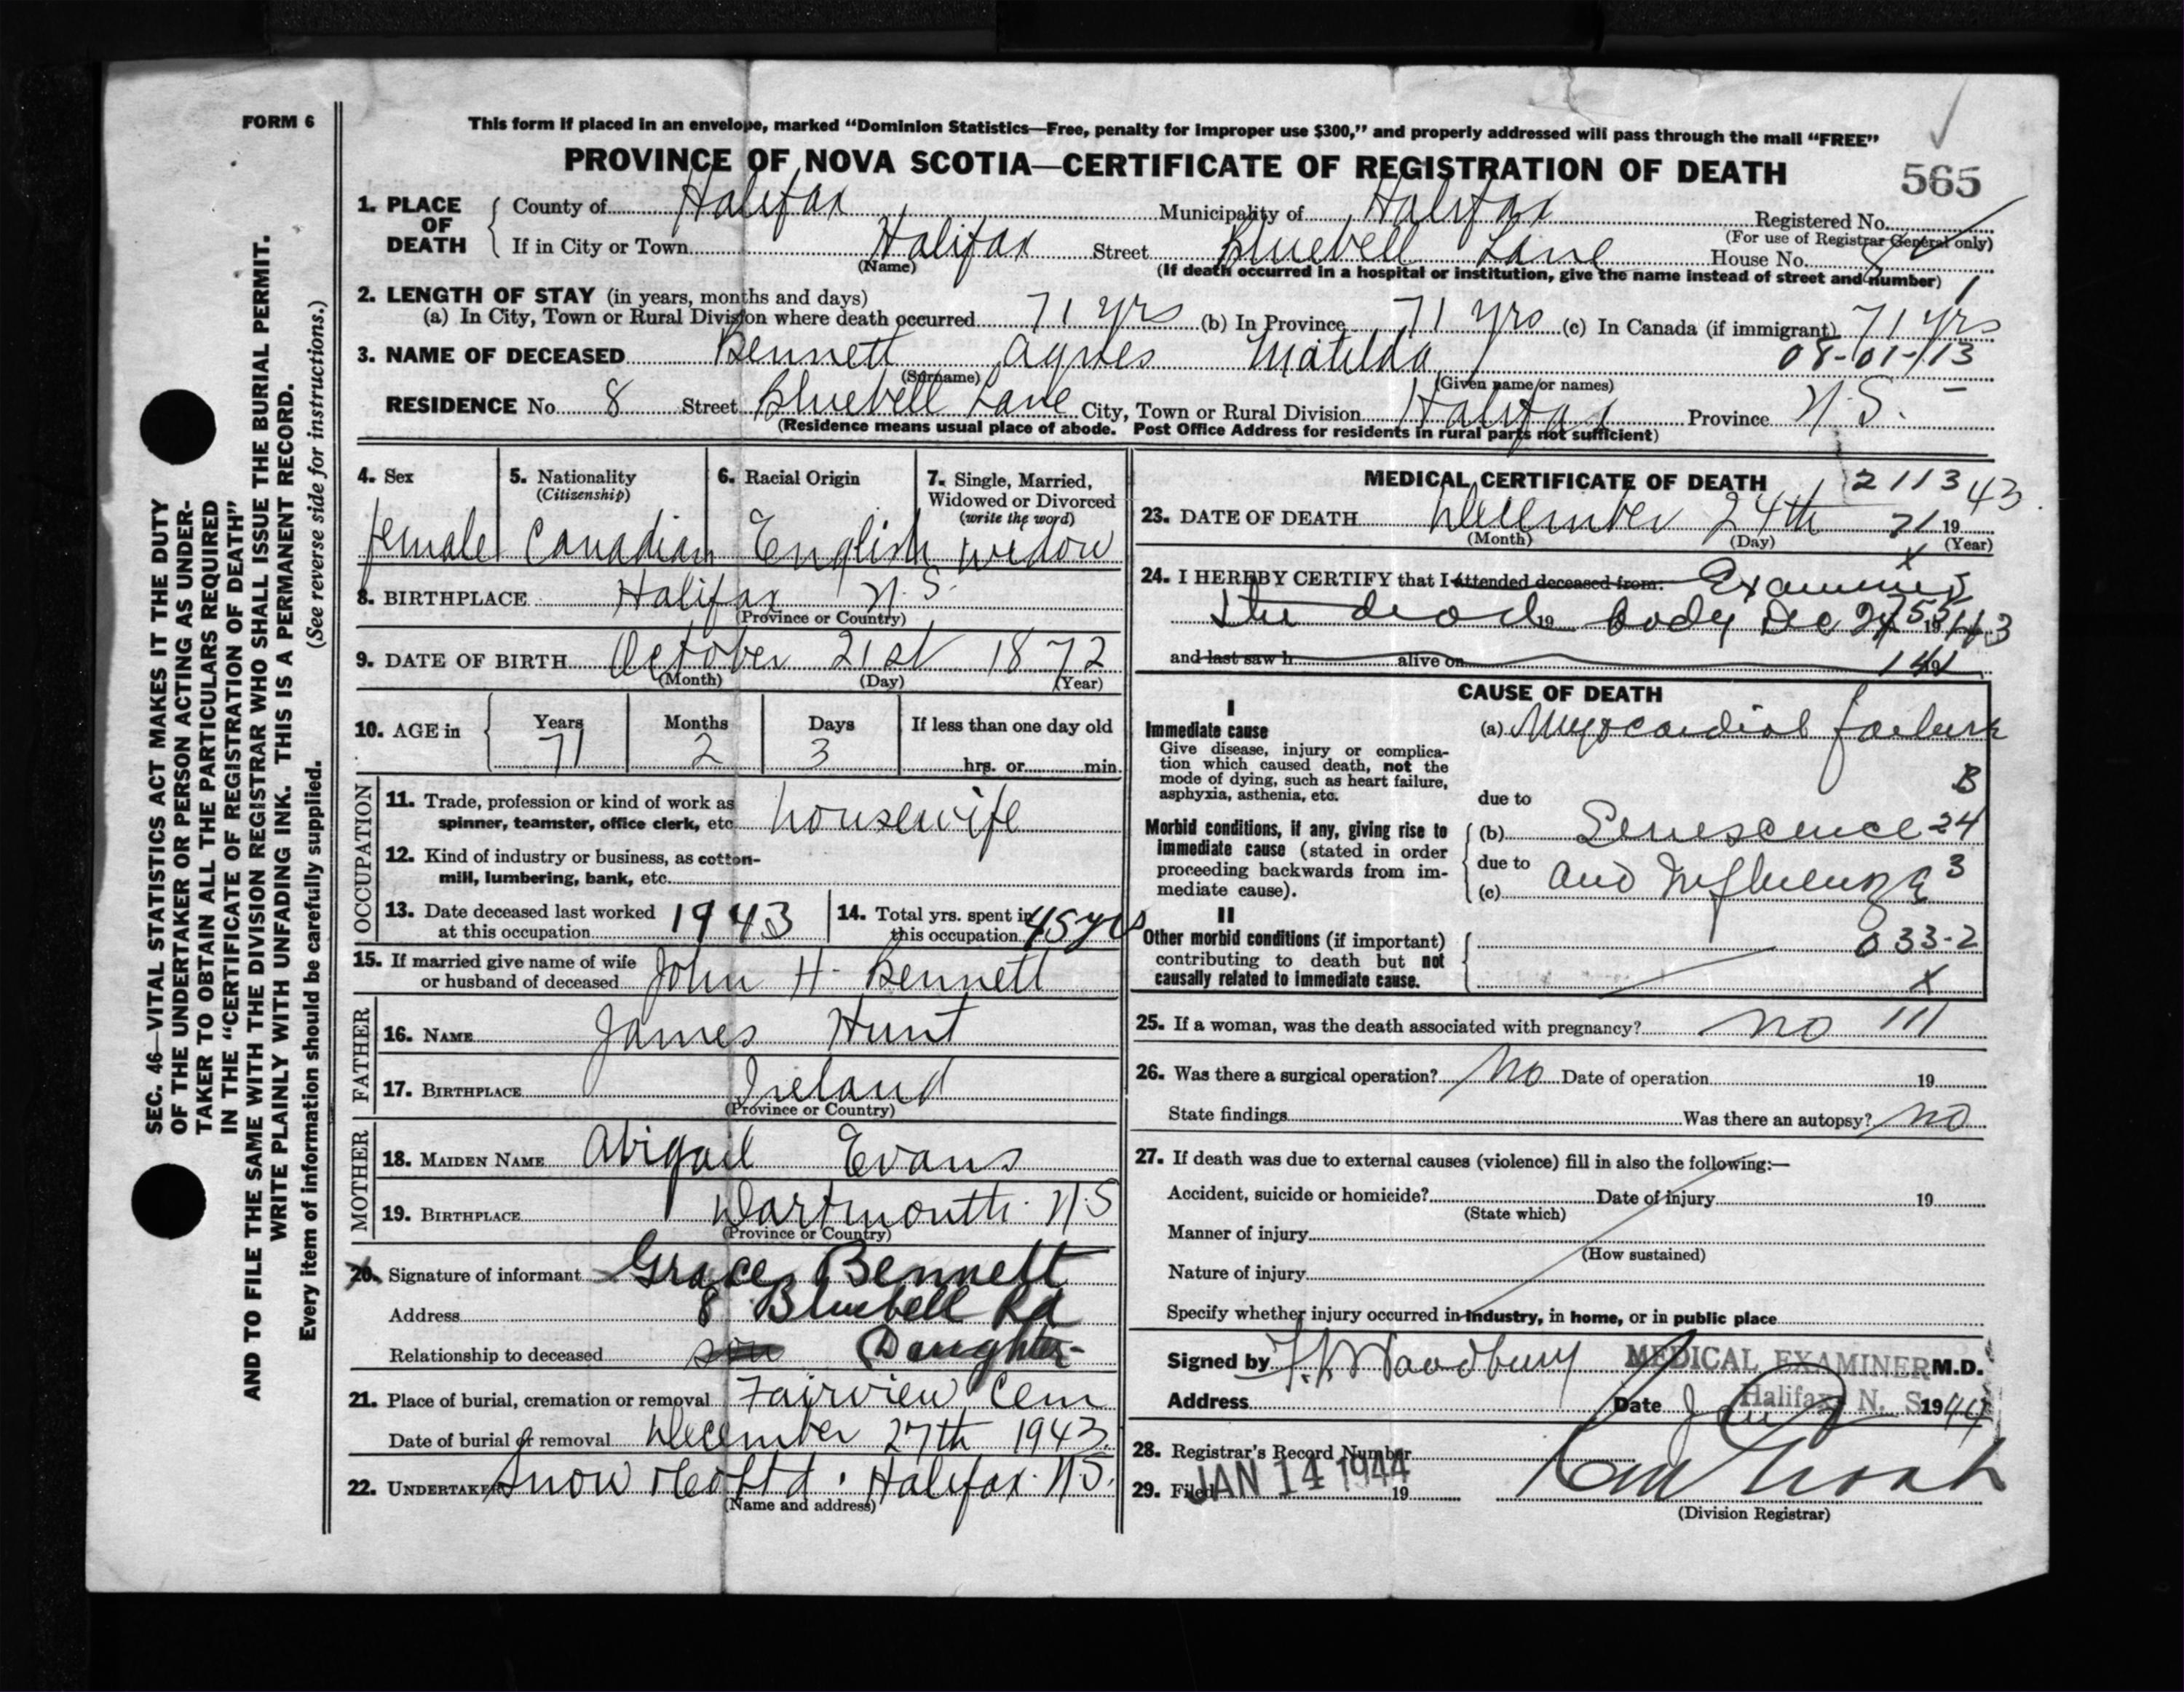 FORM 6
This form if placed in an envelope, marked “Dominion Statistics—Free, penalty for improper use $300,” and properly addressed will pass through the mail “FREE”
PROVINCE OF NOVA SCOTIA—CERTIFICATE OF REGISTRATION OF DEATH
565
SEC. 46—VITAL STATISTICS ACT MAKES IT THE DUTY
OF THE UNDERTAKER OR PERSON ACTING AS UNDER-
TAKER TO OBTAIN ALL THE PARTICULARS REQUIRED
IN THE “CERTIFICATE OF REGISTRATION OF DEATH”
AND TO FILE THE SAME WITH THE DIVISION REGISTRAR WHO SHALL ISSUE THE BURIAL PERMIT.
WRITE PLAINLY WITH UNFADING INK. THIS IS A PERMANENT RECORD.
Every item of information should be carefully supplied. (See reverse side for instructions.)
1. PLACE OF DEATH
County of Halifax Municipality of Halifax Registered No.
(For use of Registrar General only)
If in City or Town Halifax Street Bluebell Lane House No. 8
(Name) (If death occurred in a hospital or institution, give the name instead of street and number) 1
2. LENGTH OF STAY (in years, months and days)
(a) In City, Town or Rural Division where death occurred 71 yrs (b) In Province 71 yrs (c) In Canada (if immigrant) 71 yrs
3. NAME OF DECEASED Bennett Agnes Matilda 08-01-113
(Surname) (Given name or names)
RESIDENCE No. 8 Street Bluebell Lane City, Town or Rural Division Halifax Province N.S.
(Residence means usual place of abode. Post Office Address for residents in rural parts not sufficient)
4. Sex
female
5. Nationality
(Citizenship)
Canadian
6. Racial Origin
English
7. Single, Married,
Widowed or Divorced
(write the word)
widow
8. BIRTHPLACE Halifax N.S
(Province or Country)
9. DATE OF BIRTH October 21st 1872
(Month) (Day) (Year)
10. AGE in
Years Months Days If less than one day old
71 2 3 hrs. or min.
OCCUPATION
11. Trade, profession or kind of work as
spinner, teamster, office clerk, etc. housewife
12. Kind of industry or business, as cotton-
mill, lumbering, bank, etc.
13. Date deceased last worked
at this occupation 1943
14. Total yrs. spent in
this occupation 45 yrs
15. If married give name of wife
or husband of deceased John H. Bennett
FATHER
16. NAME James Hunt
17. BIRTHPLACE Ireland
(Province or Country)
MOTHER
18. MAIDEN NAME Abigail Evans
19. BIRTHPLACE Dartmouth. N.S
(Province or Country)
20. Signature of informant Grace Bennett
Address 8 Bluebell Rd
Relationship to deceased son Daughter
21. Place of burial, cremation or removal Fairview Cem
Date of burial or removal December 27th 1943
22. UNDERTAKER Snow & Co Ltd. Halifax N.S.
(Name and address)
MEDICAL CERTIFICATE OF DEATH 2113
23. DATE OF DEATH December 24th 1943
71
(Month) (Day) (Year)
24. I HEREBY CERTIFY that I attended deceased from: Examined
the dead 19 body Dec 24 1943
and last saw h alive on
CAUSE OF DEATH
I
Immediate cause
Give disease, injury or complica-
tion which caused death, not the
mode of dying, such as heart failure,
asphyxia, asthenia, etc.
(a) Myocardial failure
B
due to
Morbid conditions, if any, giving rise to
immediate cause (stated in order
proceeding backwards from im-
mediate cause).
(b) Senescence 24
due to
(c) and Influenza 3
II
Other morbid conditions (if important)
contributing to death but not
causally related to immediate cause.
033-2
x
25. If a woman, was the death associated with pregnancy? no 111
26. Was there a surgical operation? No Date of operation 19
State findings Was there an autopsy? no
27. If death was due to external causes (violence) fill in also the following:—
Accident, suicide or homicide? Date of injury 19
(State which)
Manner of injury
(How sustained)
Nature of injury
Specify whether injury occurred in industry, in home, or in public place
Signed by Woodbury MEDICAL EXAMINER M.D.
Address Halifax, N. S. Date Jan 1944
28. Registrar's Record Number
29. Filed JAN 14 1944 19
(Division Registrar)